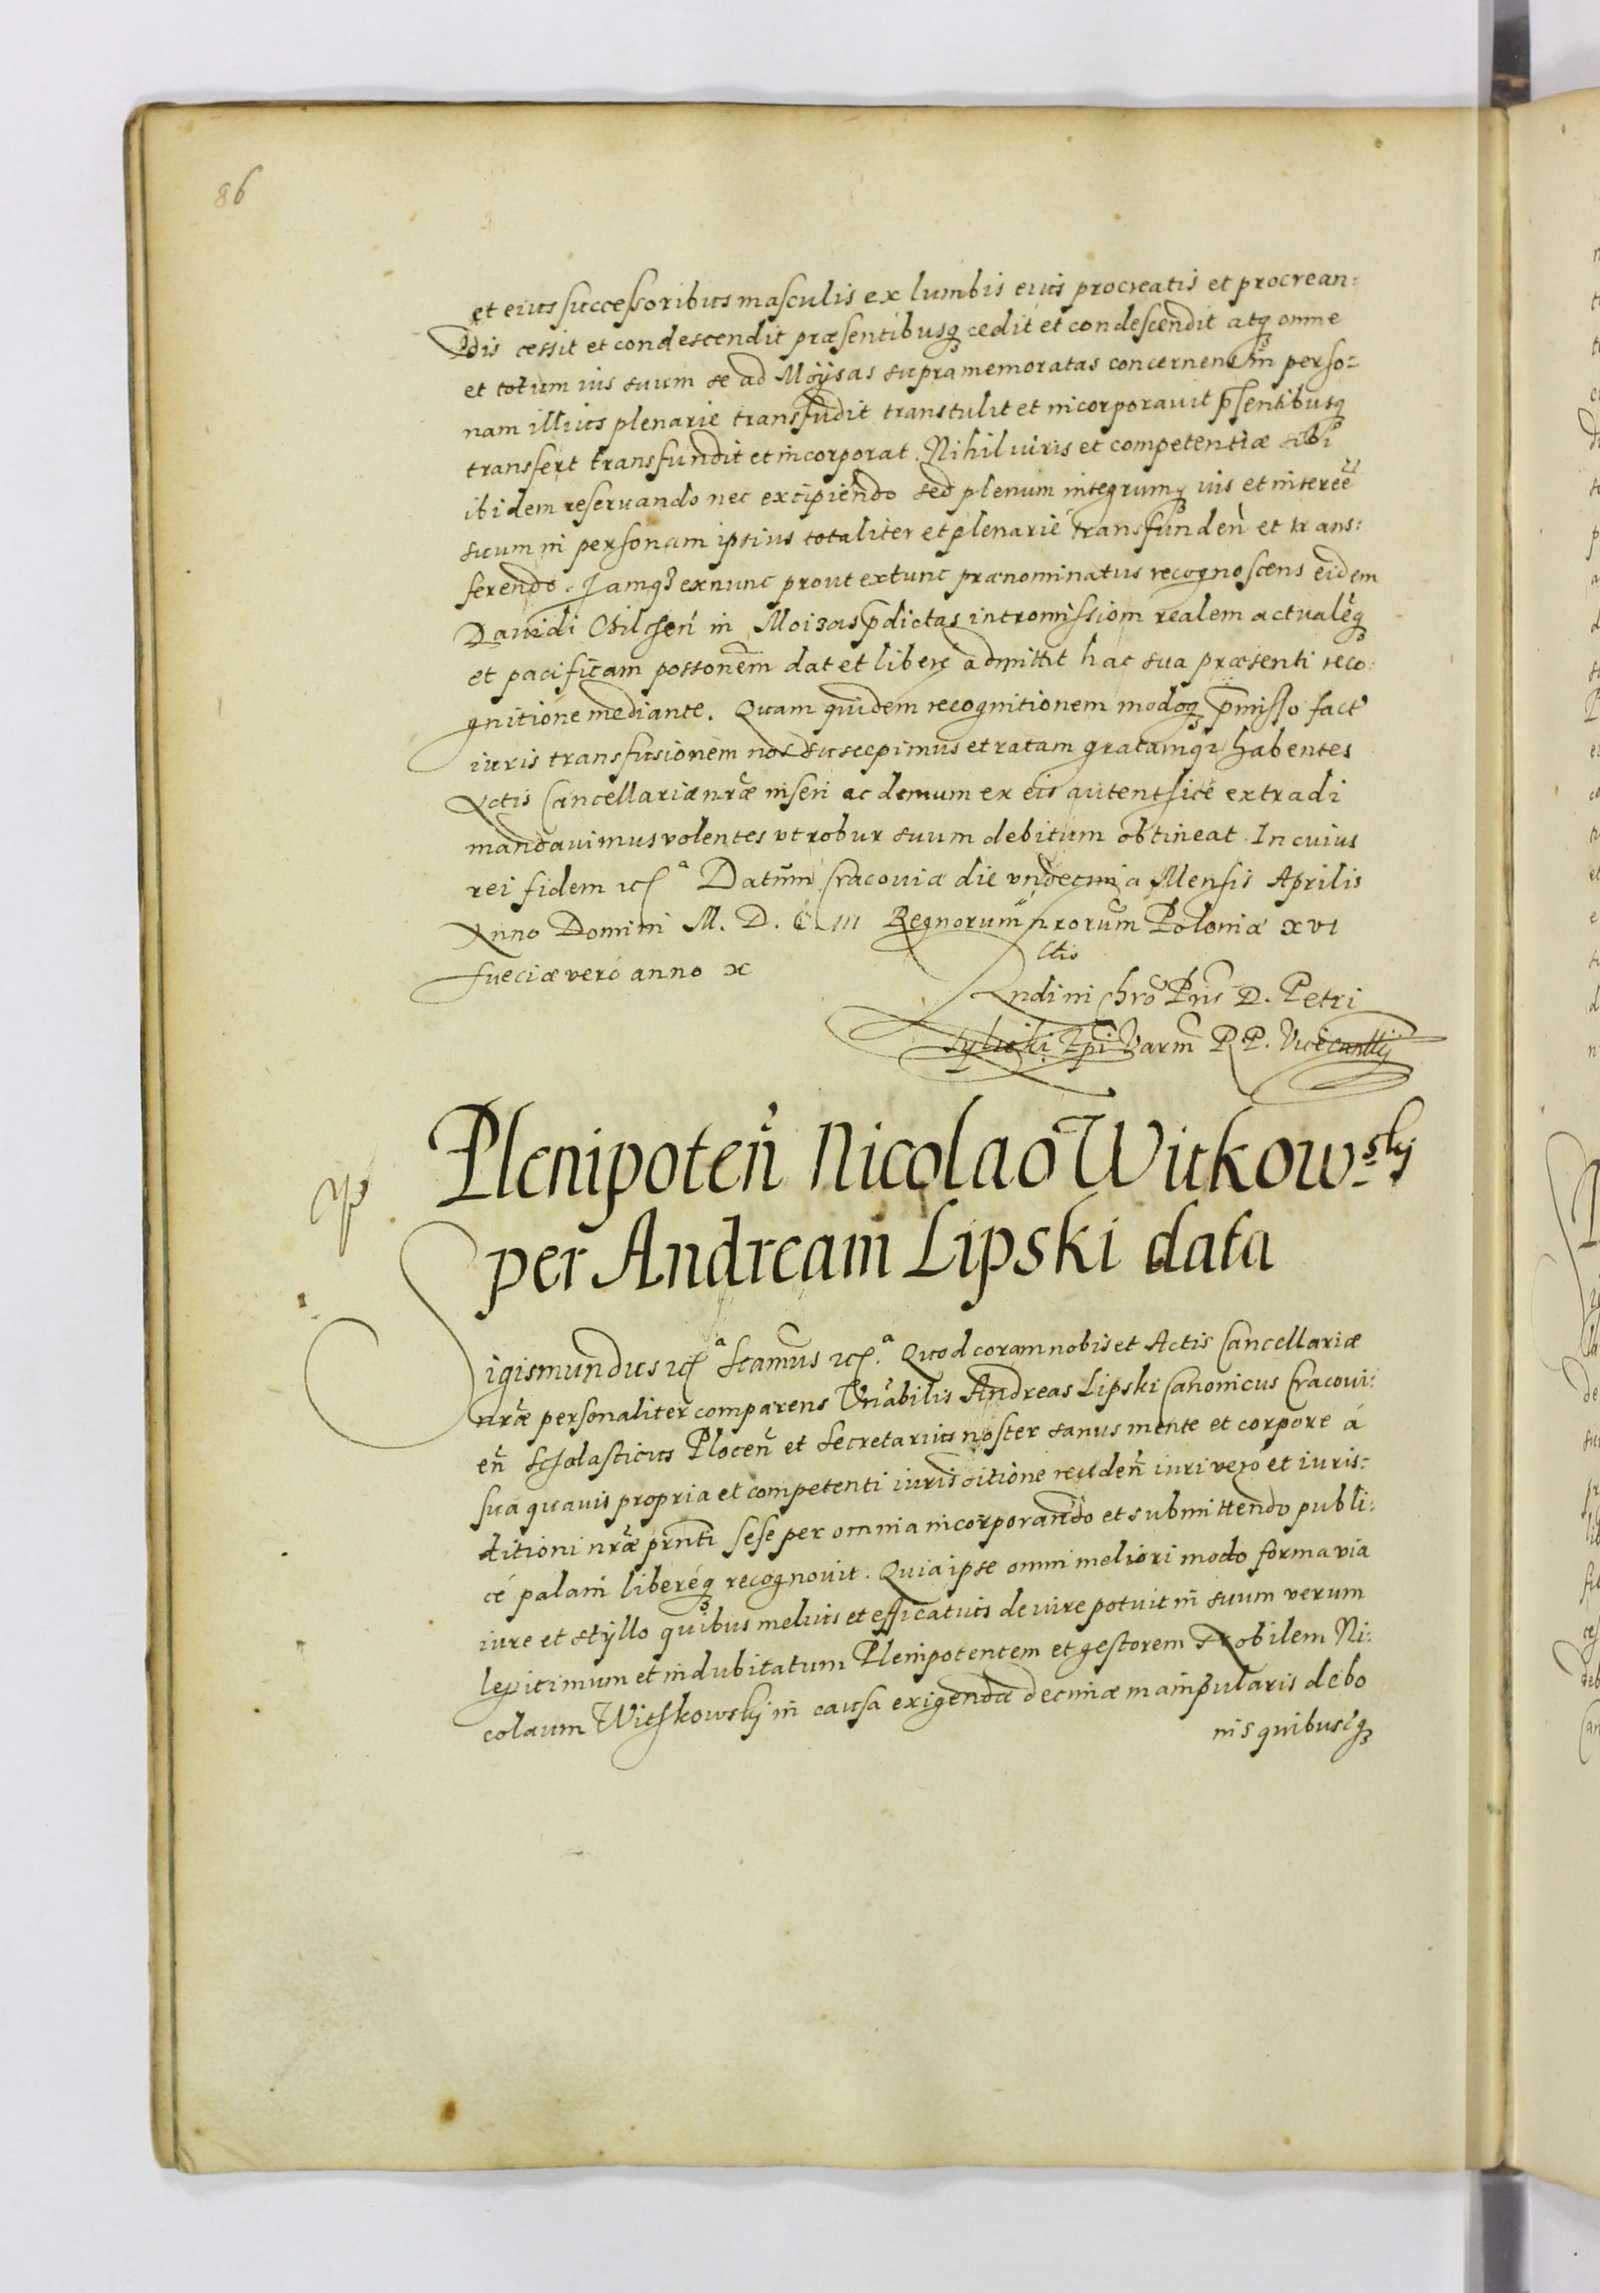 86
et eius successoribus masculis ex lumbis eius procreatis et procrean:
dis cessit et condescendit præsentibusq; cedit et condescendit atq; omne
et totum ius suum se ad Moÿsas supramemoratas concernens in perso:
nam illius plenarie transfudit transtulit et incorporavit p̄sentibusq;
transfert transfundit et incorporat. Nihil iuris et competentiæ sibi
ibidem reservando nec excipiendo sed plenum integrumq; ius et interee͂
suum in personam ipsius totaliter et plenarié transfunden̄ et trans:
ferendo. Jamq; ex nunc prout ex tunc prænominatus recognoscens eidem
Dauidi Hilchen̄ in Moizas p̄dictas intromissiom realem actualeq̄;
et pacificam possonem̄ dat et libere admittit hac sua præsenti reco:
gnitione mediante. Quam quidem recognitionem modoq; p̄misso fact
iuris transfusionem nos suscepimus et ratam gratamq; habentes
Actis Cancellariæ nr̄æ inseri ac demum ex eis autentficé extradi
mandauimus volentes vt robur suum debitum obtineat. In cuius
rei fidem ꝛc̄ᵃ Datum̄ Cracouiæ die vndecima Mensis Aprilis
Anno Domini M. D. C III Regnorum nrorum̄ Poloniæ xvi
sueciæ veró anno x
Rndi in Chrō Pris D. Petri
Tylicki Ep̄i Varm̄ R. P. Vicecancllÿ
Plenipoten̄ Nicolao Witkowskÿ
per Andream Lipski data
Sigismundus ꝛc̄ᵃ Stamus̄ ꝛc̄ᵃ. Quod coram nobis et Actis Cancellariæ
nr̄æ personaliter comparens Vn̄abilis Andreas Lipski Canonicus Cracoui:
en̄ Scholasticus Plocen̄ et Secretarius noster sanus mente et corpore á
sua quavis propria et competenti iurisditione receden̄ iuri vero et iuris:
ditioni nr̄æ prn̄ti sese per omnia incorporando et submittendo publi:
cé palam liberéq; recognouit. Quia ipse omni meliori modo forma via
iure et stÿllo quibus melius et efficatius de iure potuit in suum verum
legitimum et indubitatum Plenipotentem et gestorem Nobilem Ni:
colaum Witfkowskÿ in causa exigendæ decimæ manipularis de bo
nis quibusq;